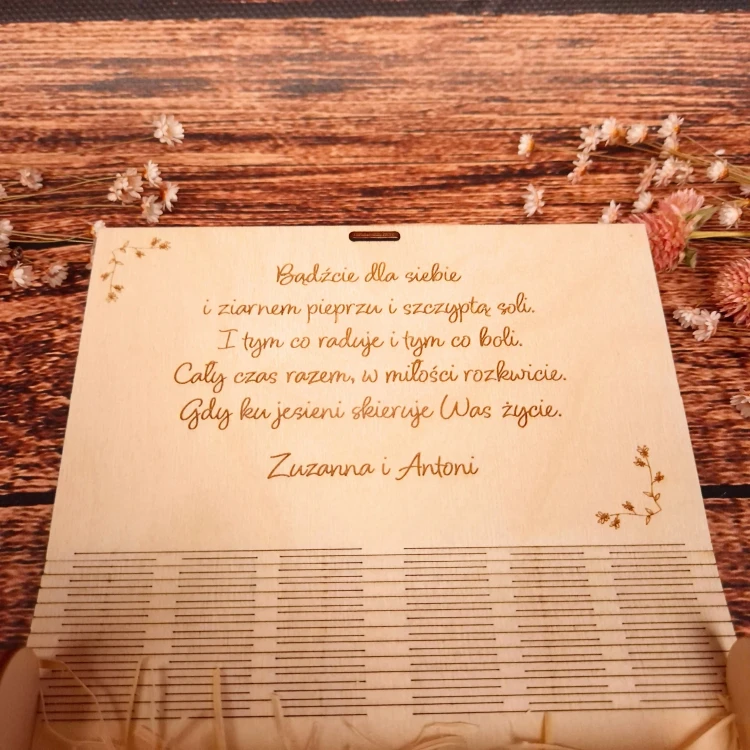 Bądźcie dla siebie
i ziarnem pieprzu i szczyptą soli.
I tym co raduje i tym co boli.
Cały czas razem, w miłości rozkwicie.
Gdy ku jesieni skieruje Was życie.
Zuzanna i Antoni